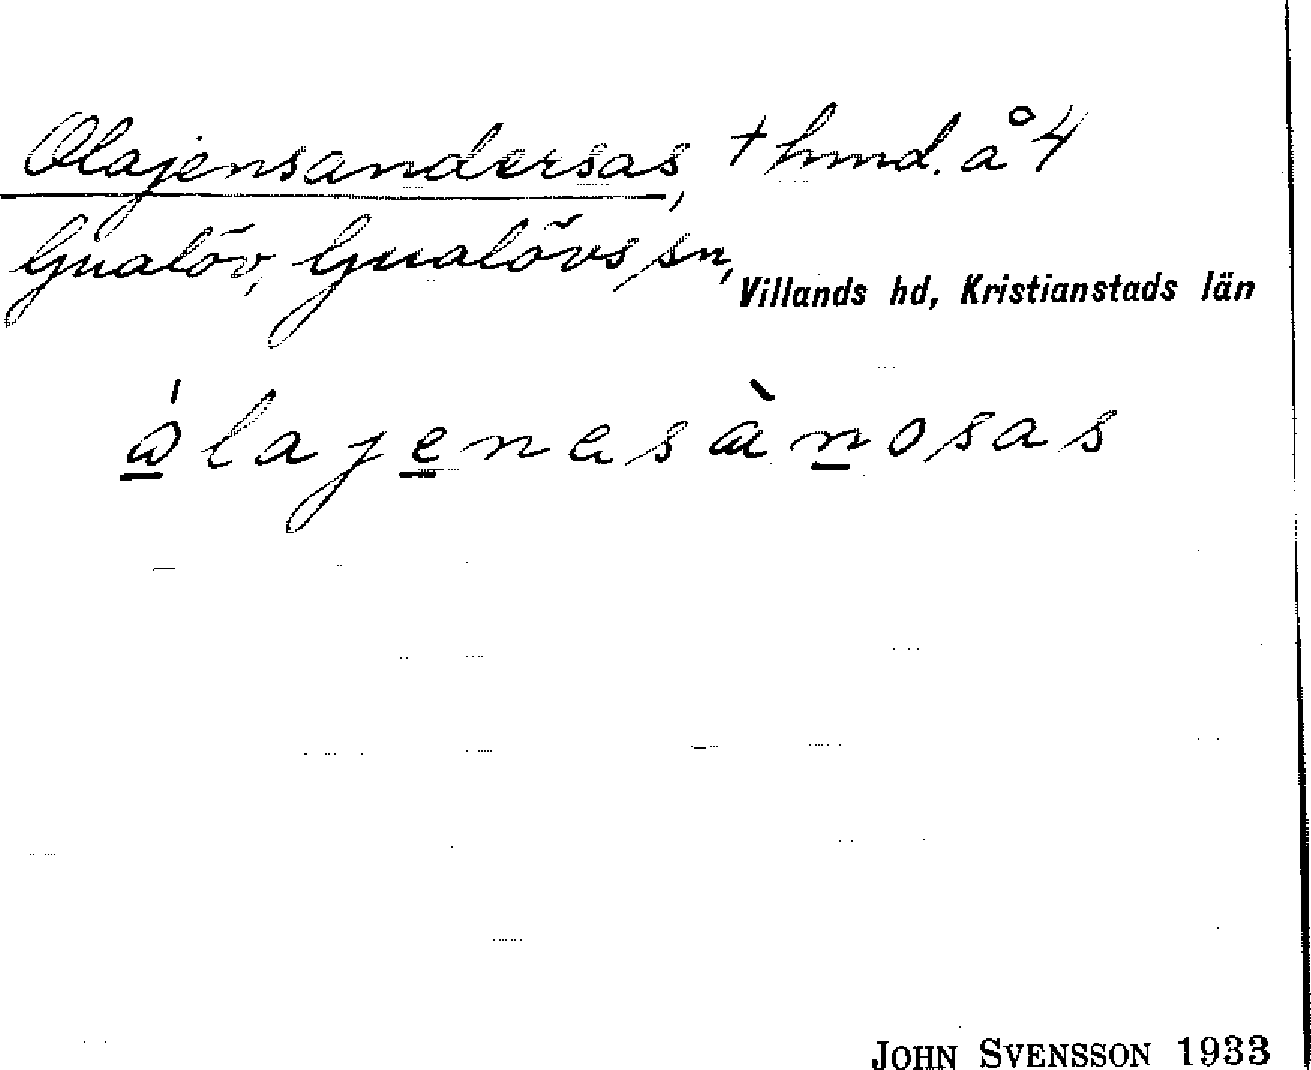 Olajensandersas, + hmd. å 4
Gualöv, Gualövs sn, Villands hd, Kristianstads län
ólajenasànosas
JOHN SVENSSON 1933